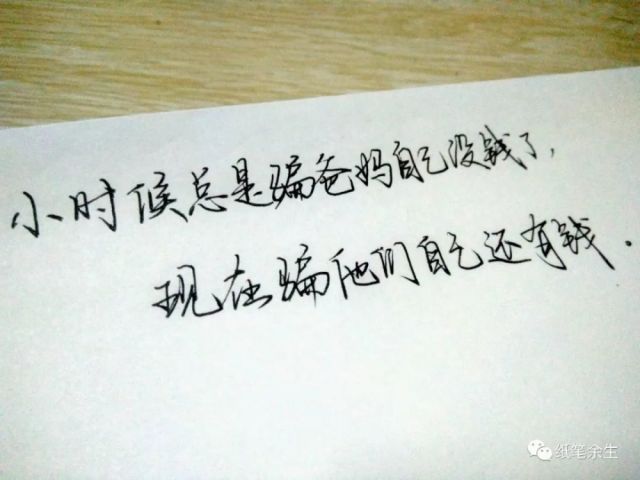 小时候总是骗爸妈自己没钱了,
现在骗他们自己还有钱.
纸笔余生